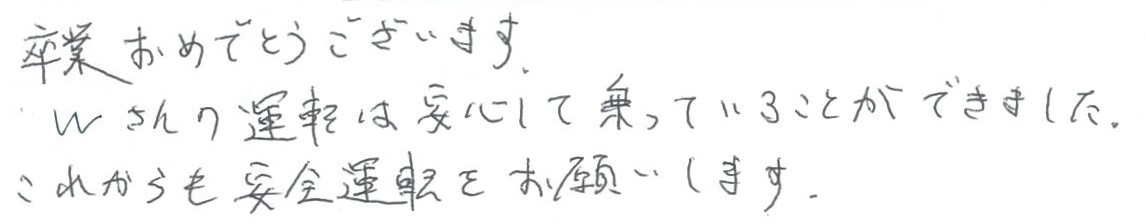 卒業おめでとうございます.
Wさんの運転は安心して乗っていることができました.
これからも安全運転をお願いします.